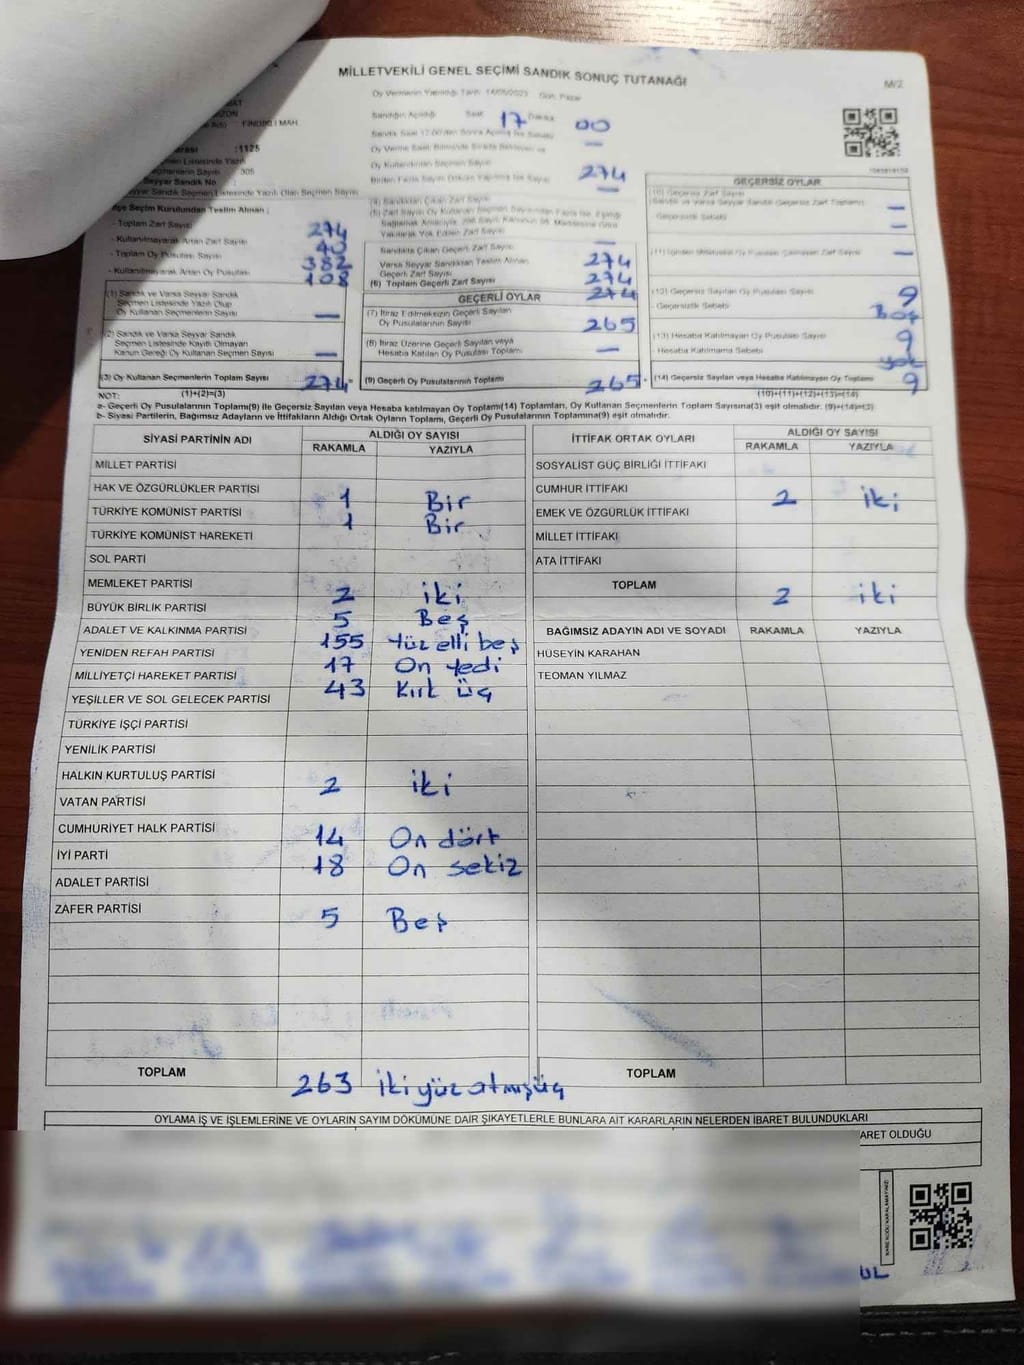 MİLLETVEKİLİ GENEL SEÇİMİ SANDIK SONUÇ TUTANAĞI
M/2
Oy Vermenin Yapıldığı Tarih: 14/05/2023 Gün: Pazar
Sandığın Açıldığı Saat 17 Dakika 00
FINDIKLI MAH.
:1125
305
274
GEÇERSİZ OYLAR
İlçe Seçim Kurulundan Teslim Alınan ;
- Toplam Zarf Sayısı 274
- Kullanılmayarak Artan Zarf Sayısı 40
- Toplam Oy Pusulası 382
- Kullanılmayarak Artan Oy Pusulası 108
Sandıkta Çıkan Geçerli Zarf Sayısı 274
Varsa Seyyar Sandıktan Teslim Alınan
Geçerli Zarf Sayısı 274
(6) Toplam Geçerli Zarf Sayısı 274
(1) Sandık ve Varsa Seyyar Sandık
Seçmen Listesinde Yazılı Olup
Oy Kullanan Seçmen Sayısı —
(2) Sandık ve Varsa Seyyar Sandık
Seçmen Listesinde Kayıtlı Olmayan
Kanun Gereği Oy Kullanan Seçmen Sayısı —
(3) Oy Kullanan Seçmenlerin Toplam Sayısı 274
(1)+(2)=(3)
GEÇERLİ OYLAR
(7) İtiraz Edilmeksizin Geçerli Sayılan
Oy Pusulalarının Sayısı 265
(8) İtiraz Üzerine Geçerli Sayılan veya
Hesaba Katılan Oy Pusulası Toplamı —
(9) Geçerli Oy Pusulalarının Toplamı 265
(12) Geçersiz Sayılan Oy Pusulası Sayısı 9
- Geçersizlik Sebebi Boş
(13) Hesaba Katılmayan Oy Pusulası Sayısı 9
- Hesaba Katılmama Sebebi yok
(14) Geçersiz Sayılan veya Hesaba Katılmayan Oy Toplamı 9
(10)+(11)+(12)+(13)=(14)
NOT:
a- Geçerli Oy Pusulalarının Toplamı(9) ile Geçersiz Sayılan veya Hesaba katılmayan Oy Toplamı(14) Toplamları, Oy Kullanan Seçmenlerin Toplam Sayısına(3) eşit olmalıdır. (9)+(14)=(3)
b- Siyasi Partilerin, Bağımsız Adayların ve İttifakların Aldığı Ortak Oyların Toplamı, Geçerli Oy Pusulalarının Toplamına(9) eşit olmalıdır.
SİYASİ PARTİNİN ADI ALDIĞI OY SAYISI
RAKAMLA YAZIYLA
MİLLET PARTİSİ
HAK VE ÖZGÜRLÜKLER PARTİSİ 1 Bir
TÜRKİYE KOMÜNİST PARTİSİ 1 Bir
TÜRKİYE KOMÜNİST HAREKETİ
SOL PARTİ
MEMLEKET PARTİSİ 2 iki
BÜYÜK BİRLİK PARTİSİ 5 Beş
ADALET VE KALKINMA PARTİSİ 155 Yüz elli beş
YENİDEN REFAH PARTİSİ 17 On Yedi
MİLLİYETÇİ HAREKET PARTİSİ 43 Kırk üç
YEŞİLLER VE SOL GELECEK PARTİSİ
TÜRKİYE İŞÇİ PARTİSİ
YENİLİK PARTİSİ
HALKIN KURTULUŞ PARTİSİ 2 iki
VATAN PARTİSİ
CUMHURİYET HALK PARTİSİ 14 On dört
İYİ PARTİ 18 On sekiz
ADALET PARTİSİ
ZAFER PARTİSİ 5 Beş
TOPLAM 263 İki yüz atmışüç
İTTİFAK ORTAK OYLARI ALDIĞI OY SAYISI
RAKAMLA YAZIYLA
SOSYALİST GÜÇ BİRLİĞİ İTTİFAKI
CUMHUR İTTİFAKI 2 iki
EMEK VE ÖZGÜRLÜK İTTİFAKI
MİLLET İTTİFAKI
ATA İTTİFAKI
TOPLAM 2 iki
BAĞIMSIZ ADAYIN ADI VE SOYADI RAKAMLA YAZIYLA
HÜSEYİN KARAHAN
TEOMAN YILMAZ
TOPLAM
OYLAMA İŞ VE İŞLEMLERİNE VE OYLARIN SAYIM DÖKÜMÜNE DAİR ŞİKAYETLERLE BUNLARA AİT KARARLARIN NELERDEN İBARET BULUNDUKLARI
ARET OLDUĞU
KARE KODU KARALAMAYINIZ!